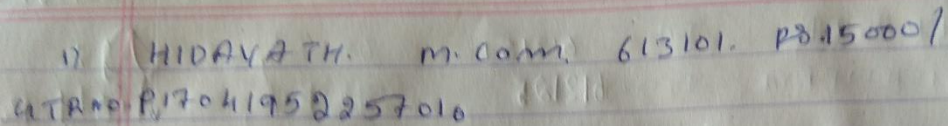 1) HIDAYATH. M.Com. 613101. RS.15000/
UTRNO.P.17041952257010